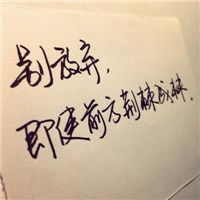 别放弃,
即使前方荆棘成林.